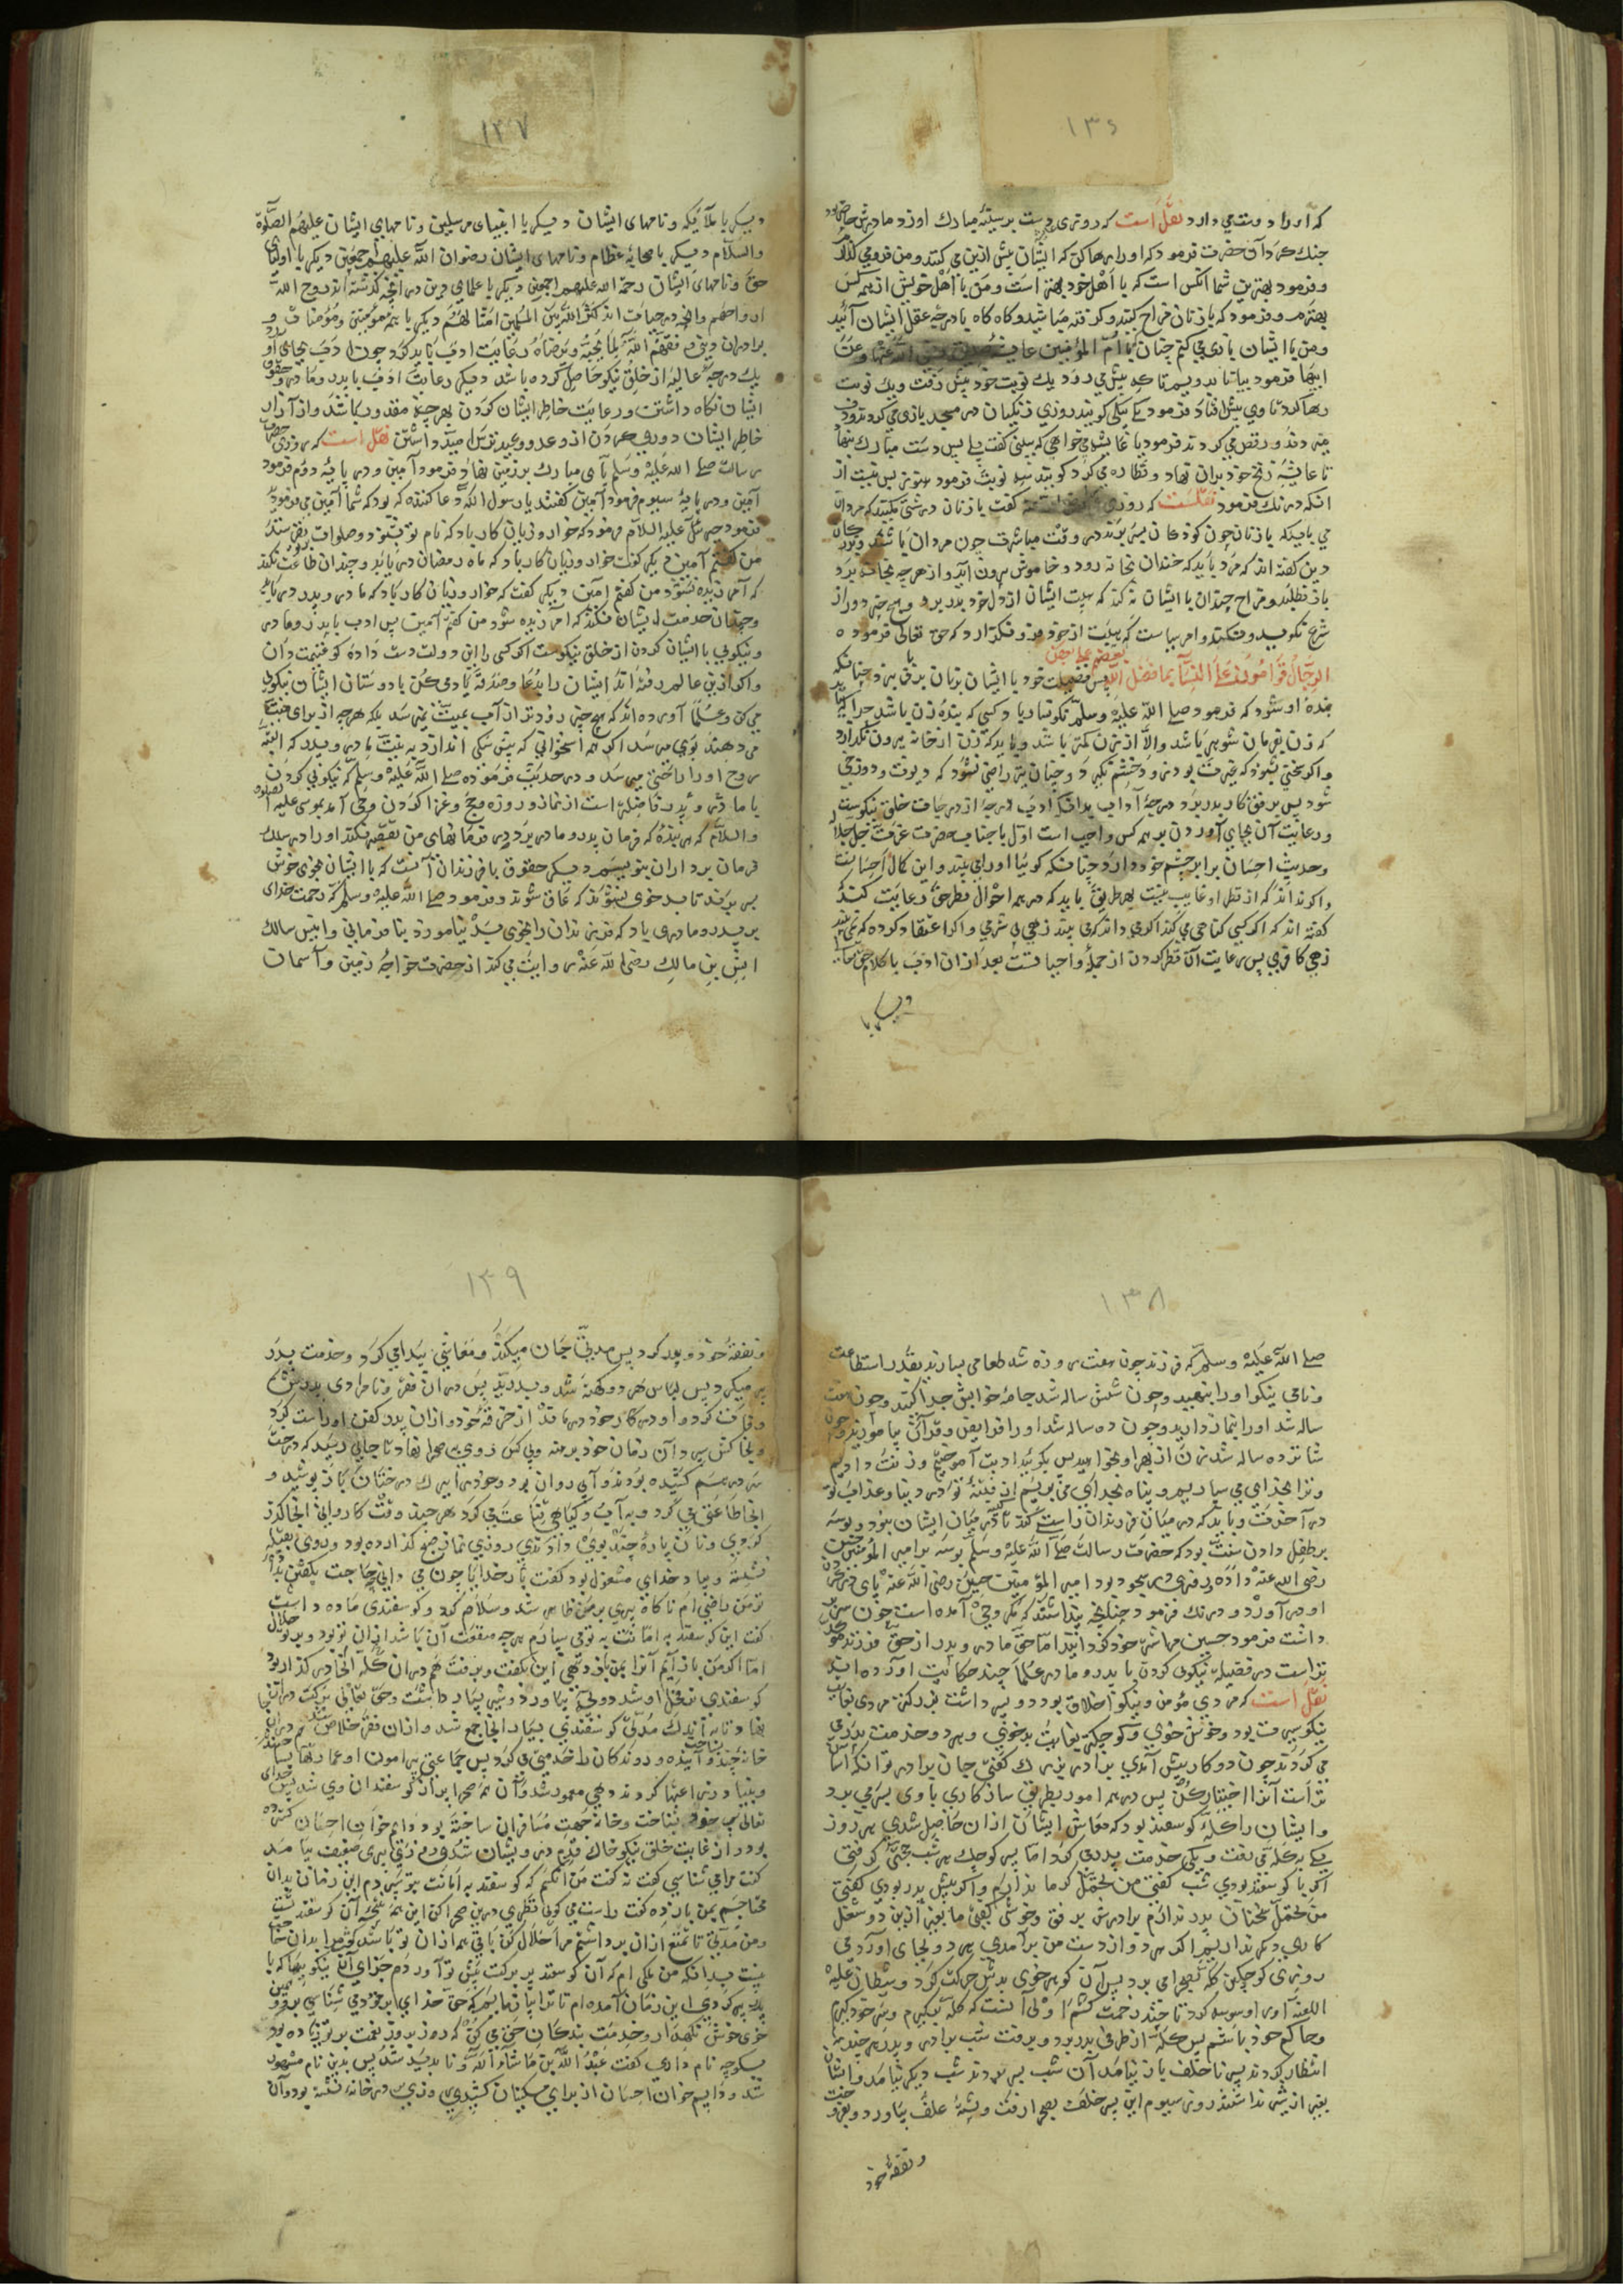 ۱۳۶
که او را دوست می دارد نقل است که روزی دست بر سینهٔ مبارك او زد مادرش
جنك کرد آن حضرت فرمود که او را رها کن که ایشان بیش ازین می کنند و من فرو می کذارم
و فرمود بهترین شما آنکس است که با اهل خود بهتر است و من با اهل خویش از همه کس
بهترم و فرمود که با زنان مزاح کنند و کرفته مباشید و کاه کاه با درجهٔ عقل ایشان آئید
و من با ایشان بازی می کنم چنان با امّ المؤمنین عایشه
اینها فرمود بیا تا بدویم تا که پیش می رود یك نوبت خود پیش رفت و یك نوبت
رها کرد تا وی پیش افتاد فرمود یکی بیکی کویند روزی زنکیان در مسجد بازی می کردند و دف
می زدند و رقص می کردند فرمود یا عایشه می خواهی که ببینی کفت بلی پس دست مبارك
تا عایشه زنخ خود بران نهاد و نظاره می کرد کویند سه نوبت فرمود هنوز بس نیست
انکه درنك فرمود نقلست که روزی کفت با زنان درشتی مکنید که مردان
می باید که با زنان چون کودکان بسر برند در وقت مباشرت چون مردان باشند و بزرکان
دین کفته اند که مرد باید که خندان بخانه رود و خاموش بیرون آید و از هر چه بخانه برد
باز نطلبد و مزاح چندان با ایشان نکند که هیبت ایشان از دل خود بدر برد و هیچ چیز دور از
شرع نکوید و نکند و امر بیاست که هیبت از خود فرو نکذارد که حق تعالی فرموده
الرِّجَالُ قَوَّامُونَ عَلَی النِّسَآءِ بِمَا فَضَّلَ اللّٰهُ بَعْضَهُمْ عَلٰی بَعْضٍ پس فضیلت خود با ایشان بزبان برفق بزند چنانکه
بنده او شود که فرمود صلی اللّٰه علیه وسلّم نکونسار با کسی که بندهٔ زن باشد چرا که می باید
که زن بفرمان شوهر باشد و الّا از زن کمتر باشد و باید که زن از خانه بیرون نکذارد
و اکر سختی بشنود که غیرت بود نرود خشم نکیرد و چنان نیز راضی نشود که دیوث و دوزخی
شود پس برفق کار بدر برد درجهٔ آداب بدانکه ادب درجه از درجات خلق نیکوست
و رعایت آن بجای آوردن بر همه کس واجب است اوّل با جناب حضرت عزّت جلّ جلاله
و حدیث احسان برابر چشم خود دارد چنانکه کوئیا او را می بیند و این کمال احسانست
و اکر نداند که از نظر او غایب نیست بهر طریق باید که در همه احوال نظر حق رعایت کند
کفته اند که اکر کسی کناهی می کند اکر می داند که می بیند زهی بی شرمی و اکر اعتقاد کرده که نمی بیند
زهی کافری پس رعایت آن نظر کردن از جملهٔ واجباتست بعد از آن ادب با کلام حق
دیکر با
۱۳۷
دیکر با ملآئکه و نامهای ایشان دیکر با انبیای مرسلین و نامهای ایشان علیهم الصّلوة
والسّلام دیکر با صحابهٔ عظام و نامهای ایشان رضوان اللّٰه علیهم اجمعین دیکر با اولیای
حق و نامهای ایشان رحمة اللّٰه علیهم اجمعین دیکر با علمای دین در انچه کذشته اند روح اللّٰه
ارواحهم و انچه در حیات اند کثّر اللّٰه بین المسلمین امثالهم دیکر با همه مؤمنین و مؤمنات و
برادران دینی وفّقهم اللّٰه لما یحبّه و یرضاه رعایت ادب باید کرد چون ادب بجای آورد
یك درجهٔ عالیه از خلق نیکو حاصل کرده باشد دیکر رعایت ادب با پدر و مادر و حقوق
ایشان نکاه داشتن و رعایت خاطر ایشان کردن بهر چند مقدور باشد و از آزار
خاطر ایشان دوری کردن از وعد و وعید ترس و امید داشتن نقل است که روزی حضرت
رسالت صلی اللّٰه علیه وسلم پای مبارك بر زمین نهاد فرمود آمین و در پایهٔ دوم فرمود
آمین و در پایهٔ سیوم فرمود آمین کفتند یا رسول اللّٰه دعا کننده که بود که شما آمین می فرمودید
فرمود جبرئیل علیه السلام فرمود که خوار و زیان کار باد که نام تو بشنود و صلوات نفرستد
من کفتم آمین دیکر کفت خوار و زیان کار باد که ماه رمضان دریابد و چندان طاعت نکند
که آمرزیده نشود من کفتم آمین دیکر کفت که خوار و زیان کار باد که مادر و پدر دریابد
و چندان خدمت ایشان نکند که آمرزیده شود من کفتم آمین پس ادب با پدر و مادر
و نیکویی با ایشان کردن از خلق نیکوست اکر کسی را این دولت دست داده کو غنیمت دان
و اکر ازین عالم رفته اند ایشان را بدعا و صدقه یاد می کن با دوستان ایشان نیکویی
می کن و علما آورده اند که هیچ چیز زودتر از آب بمیّت نمی رسد بلکه هر چه از برای میّت
می دهند بوی می رسد اکر همه استخوانی که پیش سکی اندازد به نیّت مادر و پدر که البته
بروح او راحتی می رسد و در حدیث فرموده صلی اللّٰه علیه وسلم که نیکویی کردن
با مادر و پدر فاضلتر است از نماز و روزه و حج و غزا کردن وحی آمد بموسی علیه الصلوة
والسّلام که هر بنده که فرمان پدر و مادر برد در فرمانهای من تقصیر نکند او را در سلك
فرمان برداران بنویسم دیکر حقوق با فرزندان آنست که با ایشان بخوی خوش
بسر برند تا بد خوی نشوند که عاق شوند و فرمود صلی اللّٰه علیه وسلم که رحمت خدای
بر پدر و مادری باد که فرزندان را بخوی بد نیاموزد بنافرمانی و انس مالك
انس بن مالك رضی اللّٰه عنه روایت می کند از حضرت خواجهٔ زمین و آسمان
۱۳۸
صلی اللّٰه علیه وسلم که فرزند چون هفت روزه شد طعامی بسازند بقدر استطاعت
و نامی نیکو او را بنهید و چون شش ساله شد جامهٔ خوابش جدا کنند و چون هفت
ساله شد او را بنماز دارید و چون ده ساله شد او را فرایض و قرآن بیاموزید و چون
شانزده ساله شد زن از بهر او بخواهید پس بکویید ادبت آموختیم و زنت دادیم
و ترا بخدای می سپاریم و پناه بخدای می بریم از فتنهٔ تو در دنیا و عذاب تو
در آخرت و باید که در میان فرزندان راستی کند تا در میان ایشان بود و بوسه
بر طفل دادن سنّت بود که حضرت رسالت صلی اللّٰه علیه وسلم بوسه بر امیر المؤمنین حسن
رضی اللّٰه عنه داده و روزی در سجود بود امیر المؤمنین حسین رضی اللّٰه عنه پای
او در آورد و درنك فرمود چنانچه پنداشتند که مکر وحی آمده است چون سر بر
داشت فرمود حسین مرا شتر خود کردانید امّا حق مادر و پدر از حق فرزند مؤکد
تر است در فضیلت نیکویی کردن با پدر و مادر علما چند حکایت آورده اند
نقل است که مردی مؤمن و نیکو اخلاق بود دو پسر داشت بزرکترین مردی بغایت
نیکو سیرت بود و خوش خوی و کوچکتر بغایت بد خوی و هر دو خدمت پدر می
می کردند چون دو کار پیش آمدی برادر بزرك کفتی جان برادر تو انکه آسان
تر است آنرا اختیار کن پس در همه امور بطریق سازکاری با وی بسر می برد
و ایشان را کلهٔ کوسفند بود که معاش ایشان از ان حاصل شدی هر روز
یکی به کله می رفت و یکی خدمت پدر می کرد امّا پسر کوچك هر شب حجت کرفتی
اکر با کوسفند بودی شب کفتی من تحمّل کرما ندارم و اکر پیش پدر بودی کفتی
من تحمّل سخنان پدر ندارم برادرش برفق و خوشی کفتی ما بغیر ازین دو شغل
کاری دیکر نداریم اکر هر دو از دست من برآمدی هر دو بجای آوردمی
روزی کوچکتر کله بصحرا می برد پس آن کوهر خوی بدش حرکت کرد و شیطان علیه
اللعنه او را وسوسه کرد تا چند زحمت کشم اولی آنست که کله بکیرم و سر خود کیرم
و حاکم خود باشم پس کله از طرفی بدر برد و برفت شب برادر و پدر هر چند
انتظار کردند پس ناخلف باز نیامد آن شب بسر بردند شب دیکر نیامد و ایشان
بغیر از شیر نداشتند روز سیوم این پسر خلف بصحرا رفت و پشتهٔ علف بیاورد و بفروخت
و نفقهٔ خود
۱۳۹
و نفقهٔ خود و پدر کرد پس مدتی چنان میکذشت و معاشی پیدا می کرد و خدمت پدر
پیر میکرد پس لباس هر دو کهنه شد و بدرید پس در ان فقر و نامرادی پدرش هم
وفات کرد و او در کار خود درماند از خرقهٔ خود و از ان پدر کفن او راست کرد
و بخاکش سپرد آن زمان خود برهنه و بی کس روی به صحرا نهاد تا جایی رسید که درخت
سر در هم کشیده بودند و آبی روان بود و خود را ببرك درختان باز پوشید و
انجا طاعتی می کرد و به آب و کیاهی قناعت می کرد هر چند وقت کاروانی انجا کذر
کردی و نان پارهٔ چند بوی دادندی روزی نماز صبح کذارده بود و روی بقبله
نشسته و بیاد خدای مشغول بود کفت یا رب خدایا چون می دانی چه حاجت بکفتن
تو من راضی ام ناکاه پیری بر من ظاهر شد و سلام کرد و کوسفندی ماده داشت
کفت این کوسفند به امانت به تو می سپارم هر چه منفعت آن باشد از ان تو بود و بر تو حلال
امّا اکر من باز آیم آنرا بمن باز دهی این بکفت و برفت هم در ان کله آنجا در کذار بود
کوسفندی بفحل او شد دولی بیاورد و شیر بسیار داشت و حق تعالی برکت در آن
نهاد تا به اندك مدتی کوسفندی بسیار انجا جمع شد و از ان فقر خلاص شد
خانهٔ چند ساخت و آینده و روندکان را خدمتی می کرد پس جماعتی پیرامون او عمارتها
و بنیاد زراعتها کردند دهی معمور شد و آن همه صحرا بر آن کوسفندان وی شد پس خدای
تعالی پسر خود بشناخت و خانه جهت مسافران ساخته بود و دایم خوان احسان کسترده
بود و از غایت خلق نیکو خاك قدم درویشان شدی روزی پیری ضعیف بیامد
کفت مرا می شناسی کفت نه کفت من آنکسم که کوسفند به امانت بتو سپردم این زمان بدان
محتاجم بمن باز ده کفت راست می کویی نظری درین صحرا کن این همه نتیجهٔ آن کوسفند تست
و من مدتی تا تمتّع از ان برداشتم مرا حلال کن باقی همه از ان تو باشد کفت مرا بدان حاجت
نیست بدانکه من ملکی ام که آن کوسفند پر برکت پیش تو آوردم جزای آن نیکوییها که با
پدر پیر کردی این زمان آمده ام تا ترا بیازمایم که حق خدای بر خود می شناسی برو و
خوی خوش نکهدار و خدمت بندکان حق می کن که روز بروز نعمت بر تو زیاده بود
بکو چه نام داری کفت عبد اللّٰه بن ماشاء اللّٰه و ناپدید شد پس بدین نام مشهور
شد و دایم خوان احسان از برای مسکینان کشیدی روزی در خانه نشسته بود و آن